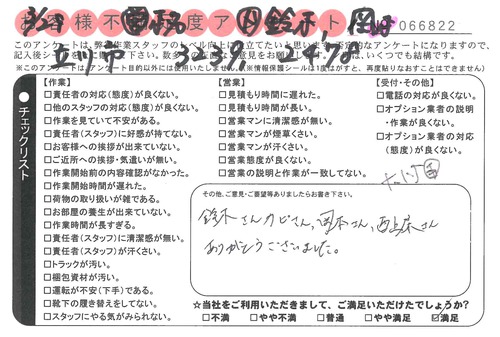 お客様不満足度アンケート
066822
このアンケートは、弊社作業スタッフのレベル向上に役立てたいと思います。否定的なアンケートになりますので、
※このアンケートは、アンケート目的以外には使用いたしません。
立川市 3239
チェックリスト
【作業】
□責任者の対応(態度)が良くない。
□他のスタッフの対応(態度)が良くない。
□作業を見ていて不安がある。
□責任者(スタッフ)に好感が持てない。
□お客様への挨拶が出来ていない。
□ご近所への挨拶・気遣いが無い。
□作業開始前の内容確認がなかった。
□作業開始時間が遅れた。
□荷物の取り扱いが雑である。
□お部屋の養生が出来ていない。
□作業時間が長すぎる。
□責任者(スタッフ)に清潔感が無い。
□責任者(スタッフ)が汗くさい。
□トラックが汚い。
□梱包資材が汚い。
□運転が不安(下手)である。
□靴下の履き替えをしてない。
□スタッフにやる気がみられない。
【営業】
□見積もり時間に遅れた。
□見積もり時間が長い。
□営業マンに清潔感が無い。
□営業マンが煙草くさい。
□営業マンが汗くさい。
□営業態度が良くない。
□営業の説明と作業が一致してない。
【受付・その他】
□電話の対応が良くない。
□オプション業者の説明
・作業が良くない。
□オプション業者の対応
(態度)が良くない。
その他、ご意見・ご要望等ありましたらお書き下さい。
鈴木さん 岡本さん、
ありがとうございました。
☆当社をご利用いただきまして、ご満足いただけたでしょうか?
□不満 □やや不満 □普通 □やや満足 ☑満足